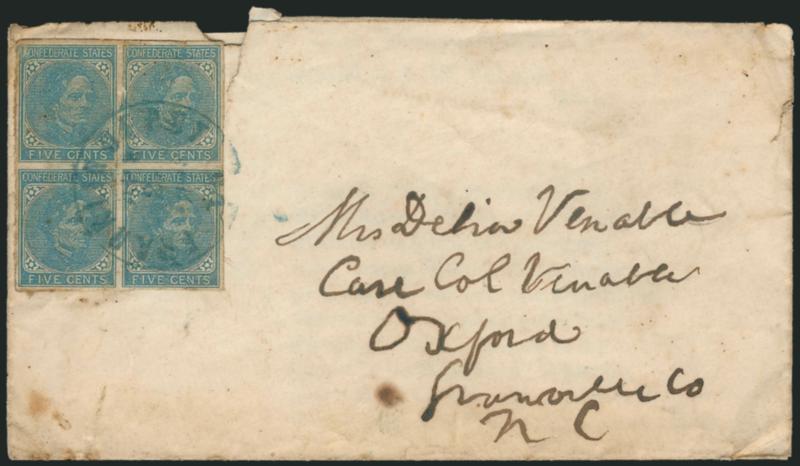 CONFEDERATE STATES CONFEDERATE STATES
FIVE CENTS FIVE CENTS
CONFEDERATE STATES CONFEDERATE STATES
FIVE CENTS FIVE CENTS
Mrs Delia Venable
Care Col Venable
Oxford
Granville Co
N C